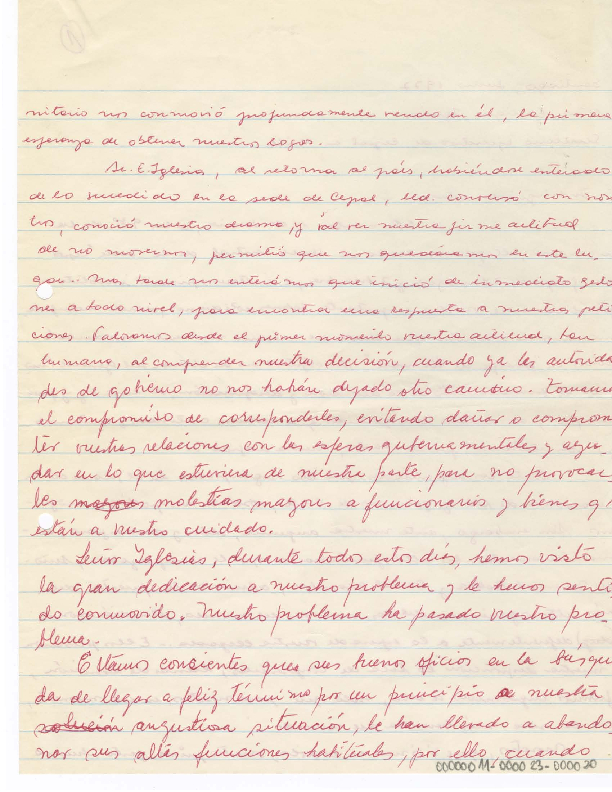 1
nitario nos conmovió profundamente viendo en él, la primera
esperanza de obtener nuestros logros.
Sr. E. Iglesia, al retornar al país, habiéndose enterado
de lo sucedido en la sede de Cepal, Ud. conversó con noso
tros, conoció nuestro drama, y al ver nuestra firme actitud
de no movernos, permitió que nos quedáramos en este lu-
gar. Mas tarde nos enteramos que inició de inmediato gestio
nes a todo nivel, para encontrar una respuesta a nuestras peti
ciones. Valoramos desde el primer momento vuestra actitud, tan
humana, al comprender nuestra decisión, cuando ya las autorida
des de gobierno no nos habían dejado otro camino. Tomamos
el compromiso de corresponderles, evitando dañar o comprom
ter vuestras relaciones con las esferas gubernamentales y ayu-
dar en lo que estuviera de nuestra parte, para no provocar
les mayores molestias mayores a funcionarios y bienes q
están a vuestro cuidado.
Señor Iglesias, durante todos estos días, hemos visto
la gran dedicación a nuestro problema y le hemos senti
do conmovido. Nuestro problema ha pasado vuestro pro-
blema.
Estamos consientes que sus buenos oficios en la búsque
da de llegar a feliz término por un principio a nuestra
solución angustiosa situación, le han llevado a abando
nar sus altas funciones habituales, por ello, cuando
000000 11-0000 23-0000 20